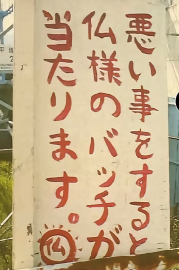 悪い事をすると
仏様のバッチが
当たります。
仏